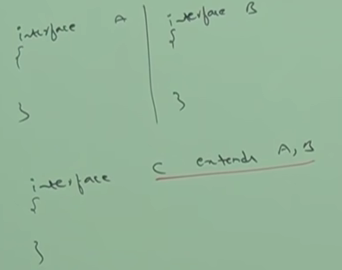 interface A
{
}
interface B
{
}
interface C extends A, B
{
}